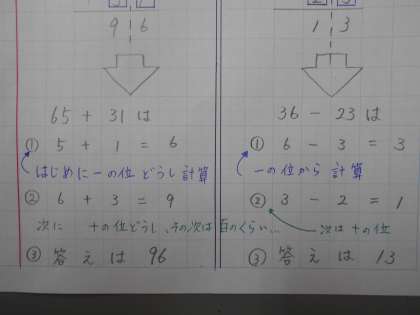 9 6
65 + 31 は
① 5 + 1 = 6
はじめに 一の位 どうし 計算
② 6 + 3 = 9
次に 十の位どうし、その次は 百のくらい…
③ 答えは 96
1 3
36 - 23 は
① 6 - 3 = 3
一の位から 計算
② 3 - 2 = 1
次は 十の位
③ 答えは 13